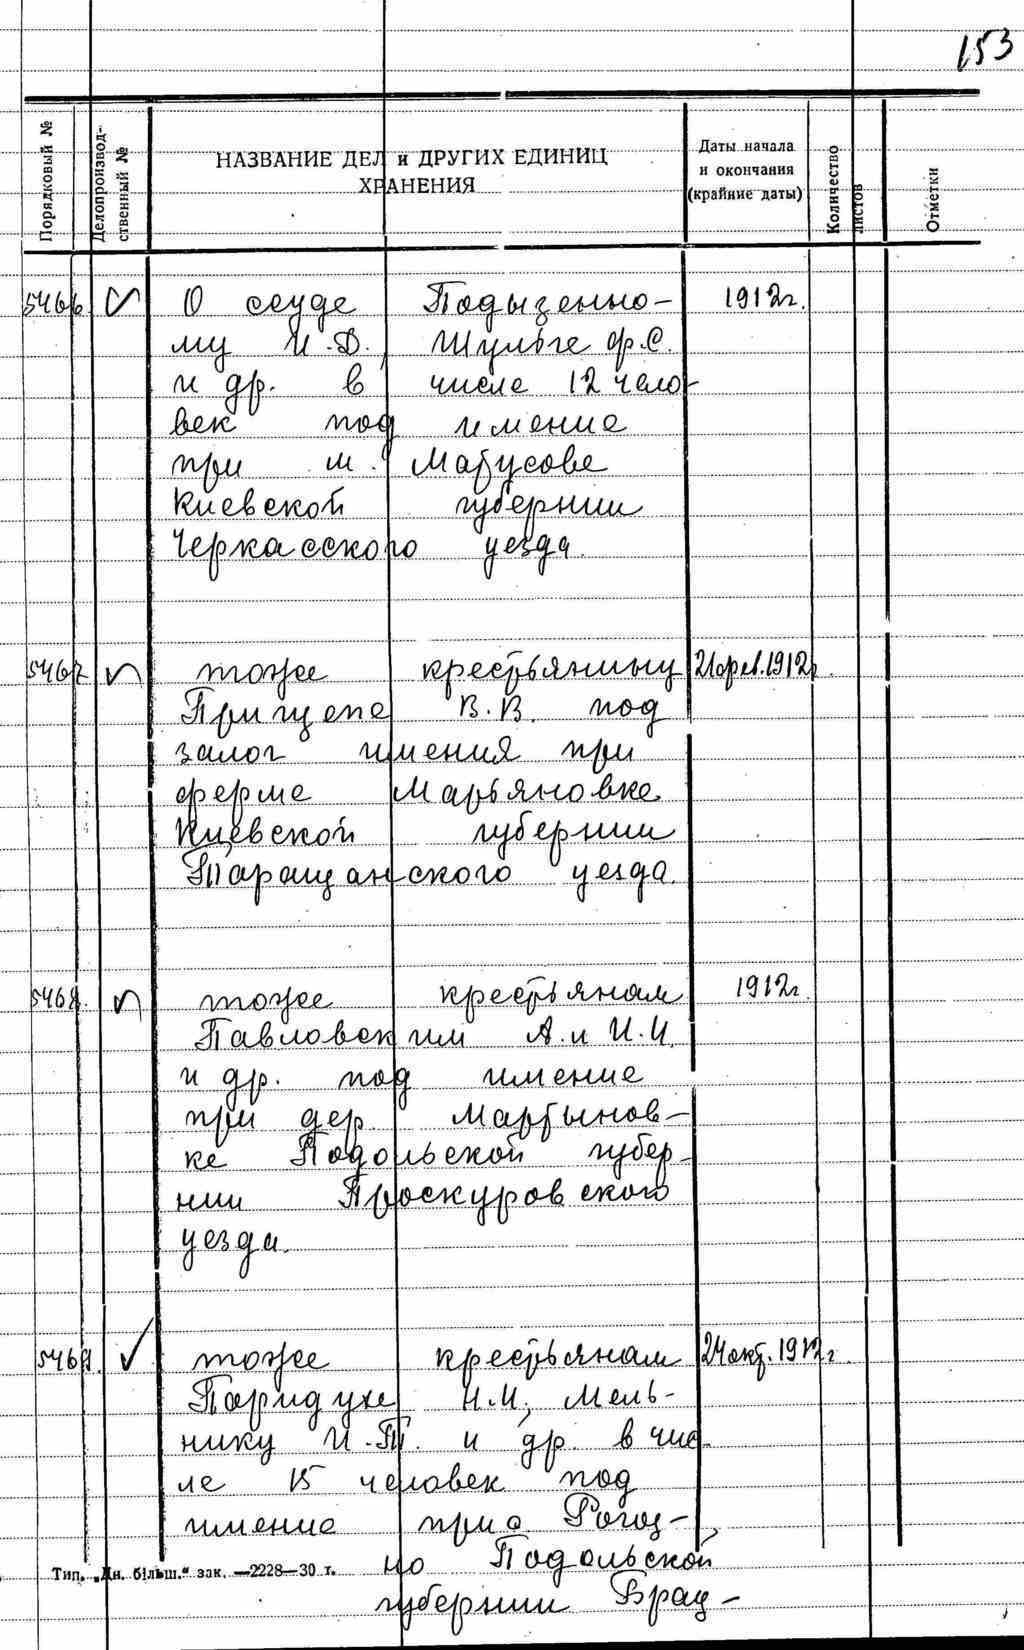 153
Порядковый №
Делопроизвод-
ственный №
НАЗВАНИЕ ДЕЛ и ДРУГИХ ЕДИНИЦ
ХРАНЕНИЯ
Даты начала
и окончания
(крайние даты)
Количество
листов
Отметки
5466 О ссуде Подызенно- 1912г.
му И.Д., Шульге Ф.С.
и др. в числе 12 чело-
век под имение
при м. Матусове
Киевской губернии
Черкасского уезда.
5467 тоже крестьянину 21 фев. 1912г.
Прищепе В.В. под
залог имения при
ферме Марьяновке
Киевской губернии
Таращанского уезда.
5468. тоже крестьянам 1912г.
Павловским А. и И.И.
и др. под имение
при дер. Мартынов-
ке Подольской губер-
нии Проскуровского
уезда.
5469. тоже крестьянам 24 окт. 1912г.
Паридухе Н.М., Мель-
нику И.Т. и др. в чис-
ле 15 человек под
имение при с. Рогоз-
но Подольской
губернии Брац-
Тип. „Дн. більш.“ зак. —2228—30 т.